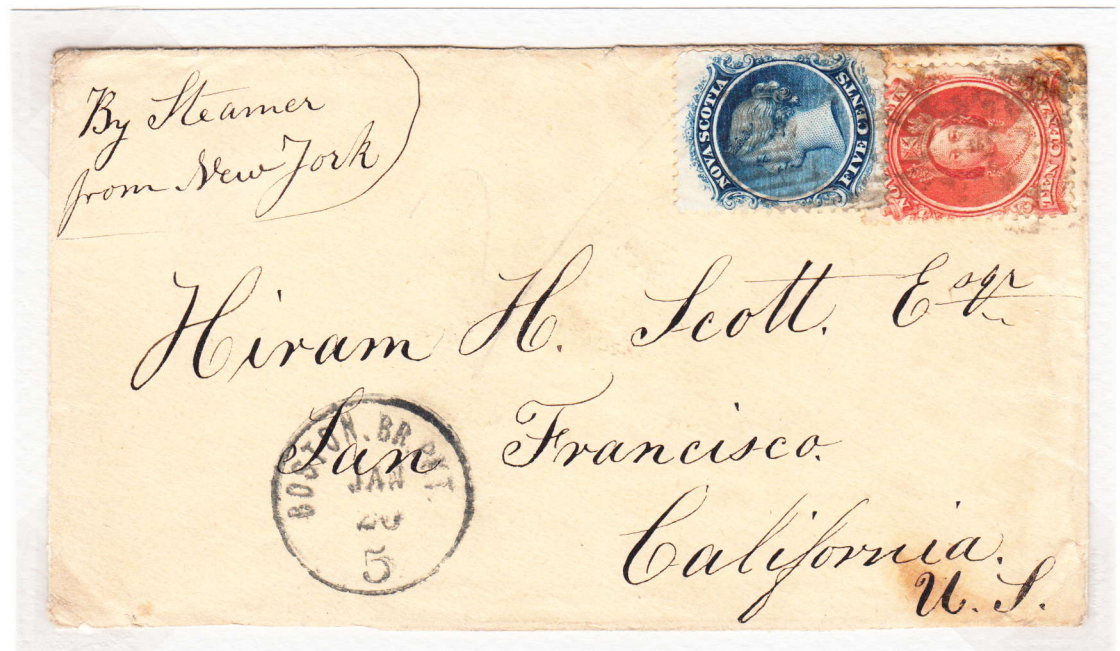 By Steamer
from New York
NOVA SCOTIA
FIVE CENTS
Hiram H. Scott. Esqr
San Francisco.
California.
U. S.
BOSTON. BR. PKT.
JAN
20
5